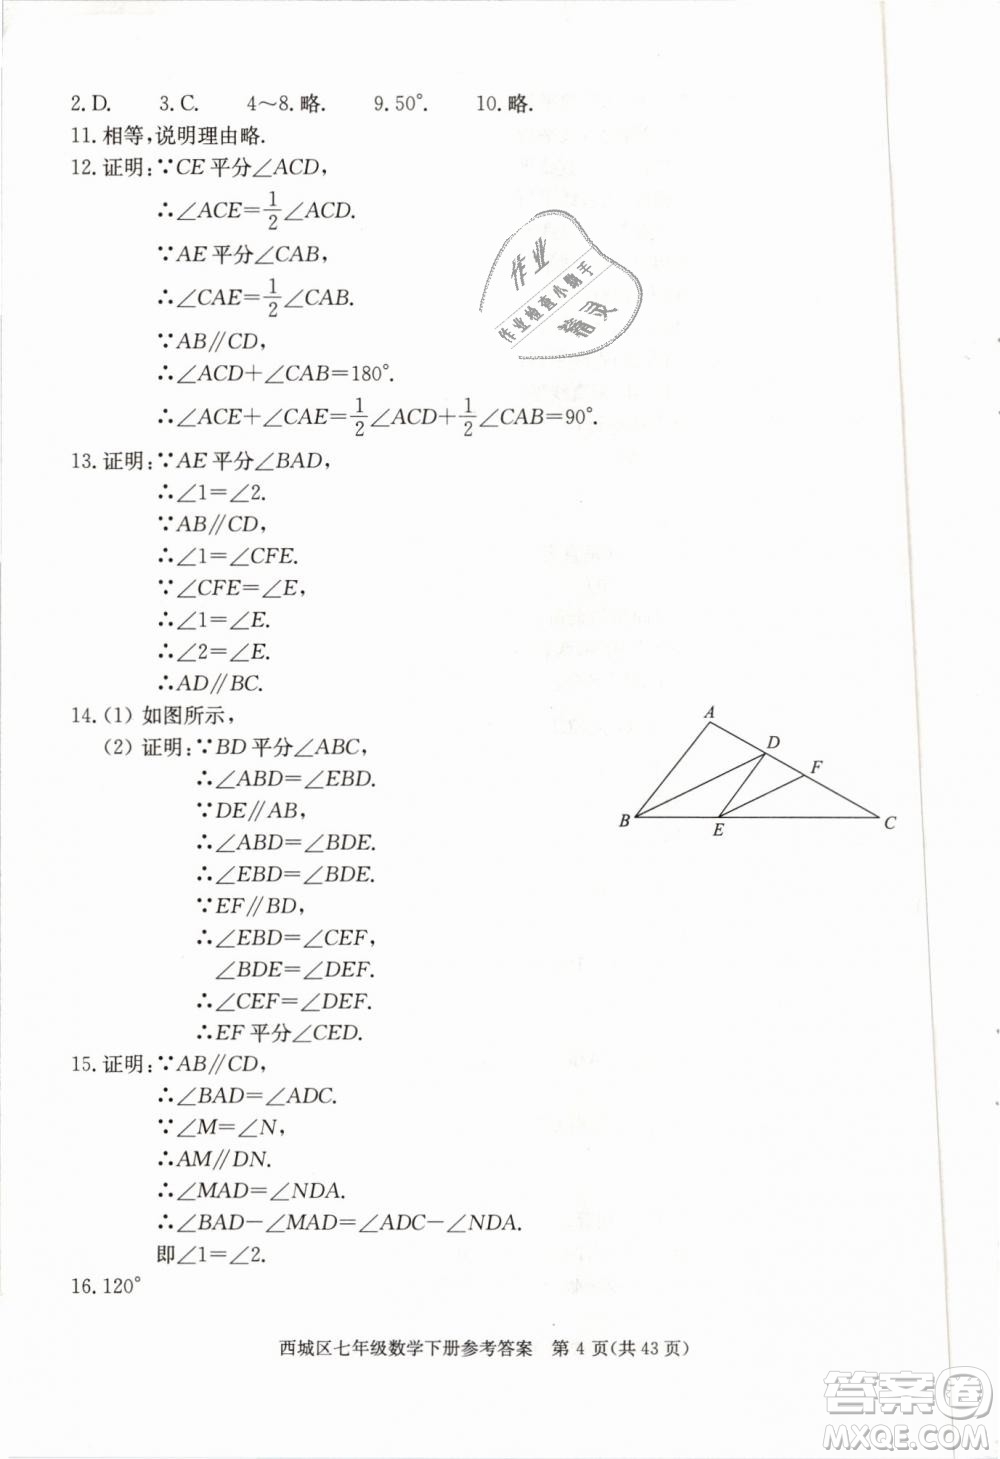 2.D.　3.C.　4～8.略.　9.50°.　10.略.
11.相等,说明理由略.
12.证明:∵CE平分∠ACD,
∴∠ACE=1/2∠ACD.
∵AE平分∠CAB,
∴∠CAE=1/2∠CAB.
∵AB∥CD,
∴∠ACD+∠CAB=180°.
∴∠ACE+∠CAE=1/2∠ACD+1/2∠CAB=90°.
13.证明:∵AE平分∠BAD,
∴∠1=∠2.
∵AB∥CD,
∴∠1=∠CFE.
∵∠CFE=∠E,
∴∠1=∠E.
∴∠2=∠E.
∴AD∥BC.
14.(1) 如图所示,
(2) 证明:∵BD平分∠ABC,
∴∠ABD=∠EBD.
∵DE∥AB,
∴∠ABD=∠BDE.
∴∠EBD=∠BDE.
∵EF∥BD,
∴∠EBD=∠CEF,
∠BDE=∠DEF.
∴∠CEF=∠DEF.
∴EF平分∠CED.
A
D
F
B
E
C
15.证明:∵AB∥CD,
∴∠BAD=∠ADC.
∵∠M=∠N,
∴AM∥DN.
∴∠MAD=∠NDA.
∴∠BAD-∠MAD=∠ADC-∠NDA.
即∠1=∠2.
16.120°
西城区七年级数学下册参考答案　第 4 页(共 43 页)
作业
作业检查小助手
精灵
答案卷
MXQE.COM